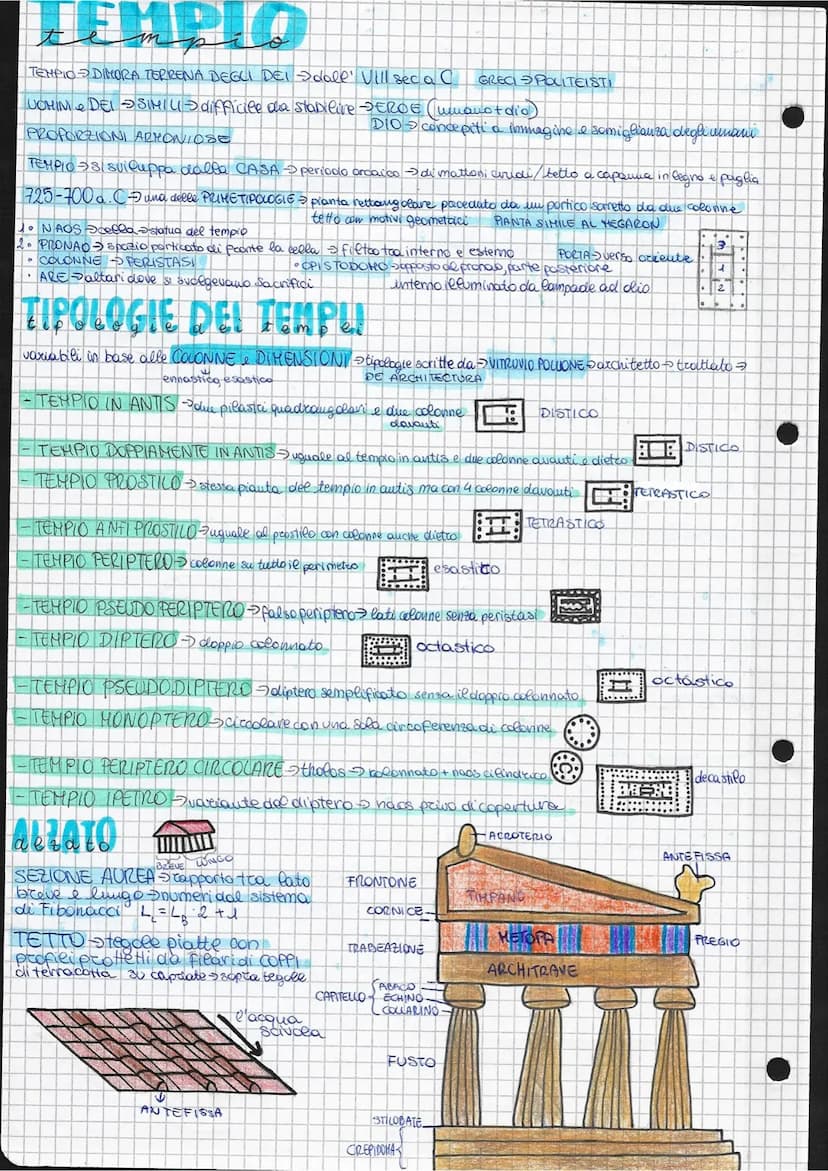 TEMPIO
tempio
TEMPIO → DIMORA TERRENA DEGLI DEI → dall' VIII sec a C GRECI → POLITEISTI
UOMINI e DEI → SIMILI → difficile da stabilire → EROE (umano + dio)
DIO → concepiti a immagine e somiglianza degli umani
PROPORZIONI ARMONIOSE
TEMPIO → si sviluppa dalla CASA → periodo arcaico → di mattoni crudi/tetto a capanna in legno e paglia
725-700 a.C → una delle PRIME TIPOLOGIE → pianta rettangolare preceduto da un portico sorretto da due colonne
tetto con motivi geometrici PIANTA SIMILE AL MEGARON
1• NAOS → cella → statua del tempio
2• PRONAO → spazio porticato di fronte la cella → filtro tra interno e esterno PORTA → verso oriente
• COLONNE → PERISTASI • OPISTODOMO → opposto al pronao, parte posteriore
• ARE → altari dove si svolgevano sacrifici interno illuminato da lampade ad olio
3
1
2
TIPOLOGIE DEI TEMPLI
tipologie dei templi
variabili in base alle COLONNE e DIMENSIONI → tipologie scritte da → VITRUVIO POLLIONE → architetto → trattato →
ennastico, esastico DE ARCHITECTURA
- TEMPIO IN ANTIS → due pilastri quadrangolari e due colonne DISTICO
davanti
- TEMPIO DOPPIAMENTE IN ANTIS → uguale al tempio in antis e due colonne avanti e dietro DISTICO
- TEMPIO PROSTILO → stessa pianta del tempio in antis ma con 4 colonne davanti TETRASTICO
- TEMPIO ANTIPROSTILO → uguale al prostilo con colonne anche dietro TETRASTICO
- TEMPIO PERIPTERO → colonne su tutto il perimetro esastico
- TEMPIO PSEUDO PERIPTERO → falso periptero → lati colonne senza peristasi
- TEMPIO DIPTERO → doppio colonnato octastico
- TEMPIO PSEUDODIPTERO → diptero semplificato senza il doppio colonnato octastico
- TEMPIO MONOPTERO → circolare con una sola circoferenza di colonne
- TEMPIO PERIPTERO CIRCOLARE → tholos → colonnato + naos cilindrico decastilo
- TEMPIO IPETRO → variante del diptero → naos privo di copertura
ALZATO
alzato
BREVE LUNGO
SEZIONE AUREA → rapporto tra lato
breve e lungo → numeri dal sistema
di Fibonacci L_L = L_B · 2 + 1
TETTO → tegole piatte con
profili protetti da filari di COPPI
di terracotta su capriate → sopra tegole
l'acqua
scivola
ANTEFISSA
ACROTERIO
ANTEFISSA
FRONTONE
TIMPANO
CORNICE
METOPA
FREGIO
TRABEAZIONE
ARCHITRAVE
CAPITELLO
ABACO
ECHINO
COLLARINO
FUSTO
STILOBATE
CREPIDOMA